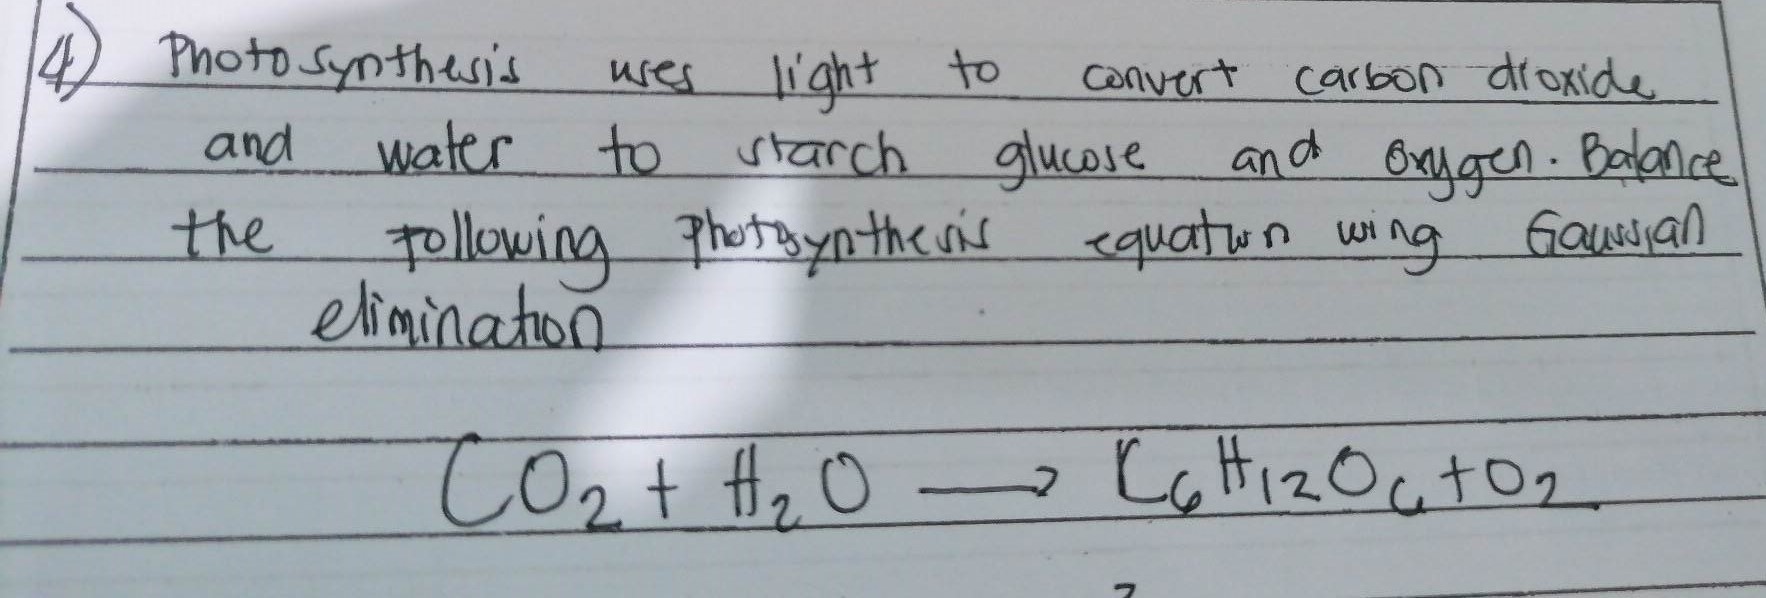 4) Photosynthesis uses light to convert carbon dioxide
and water to starch glucose and oxygen. Balance
the following photosynthesis equation using Gaussian
elimination
CO₂ + H₂O → C₆H₁₂O₆ + O₂